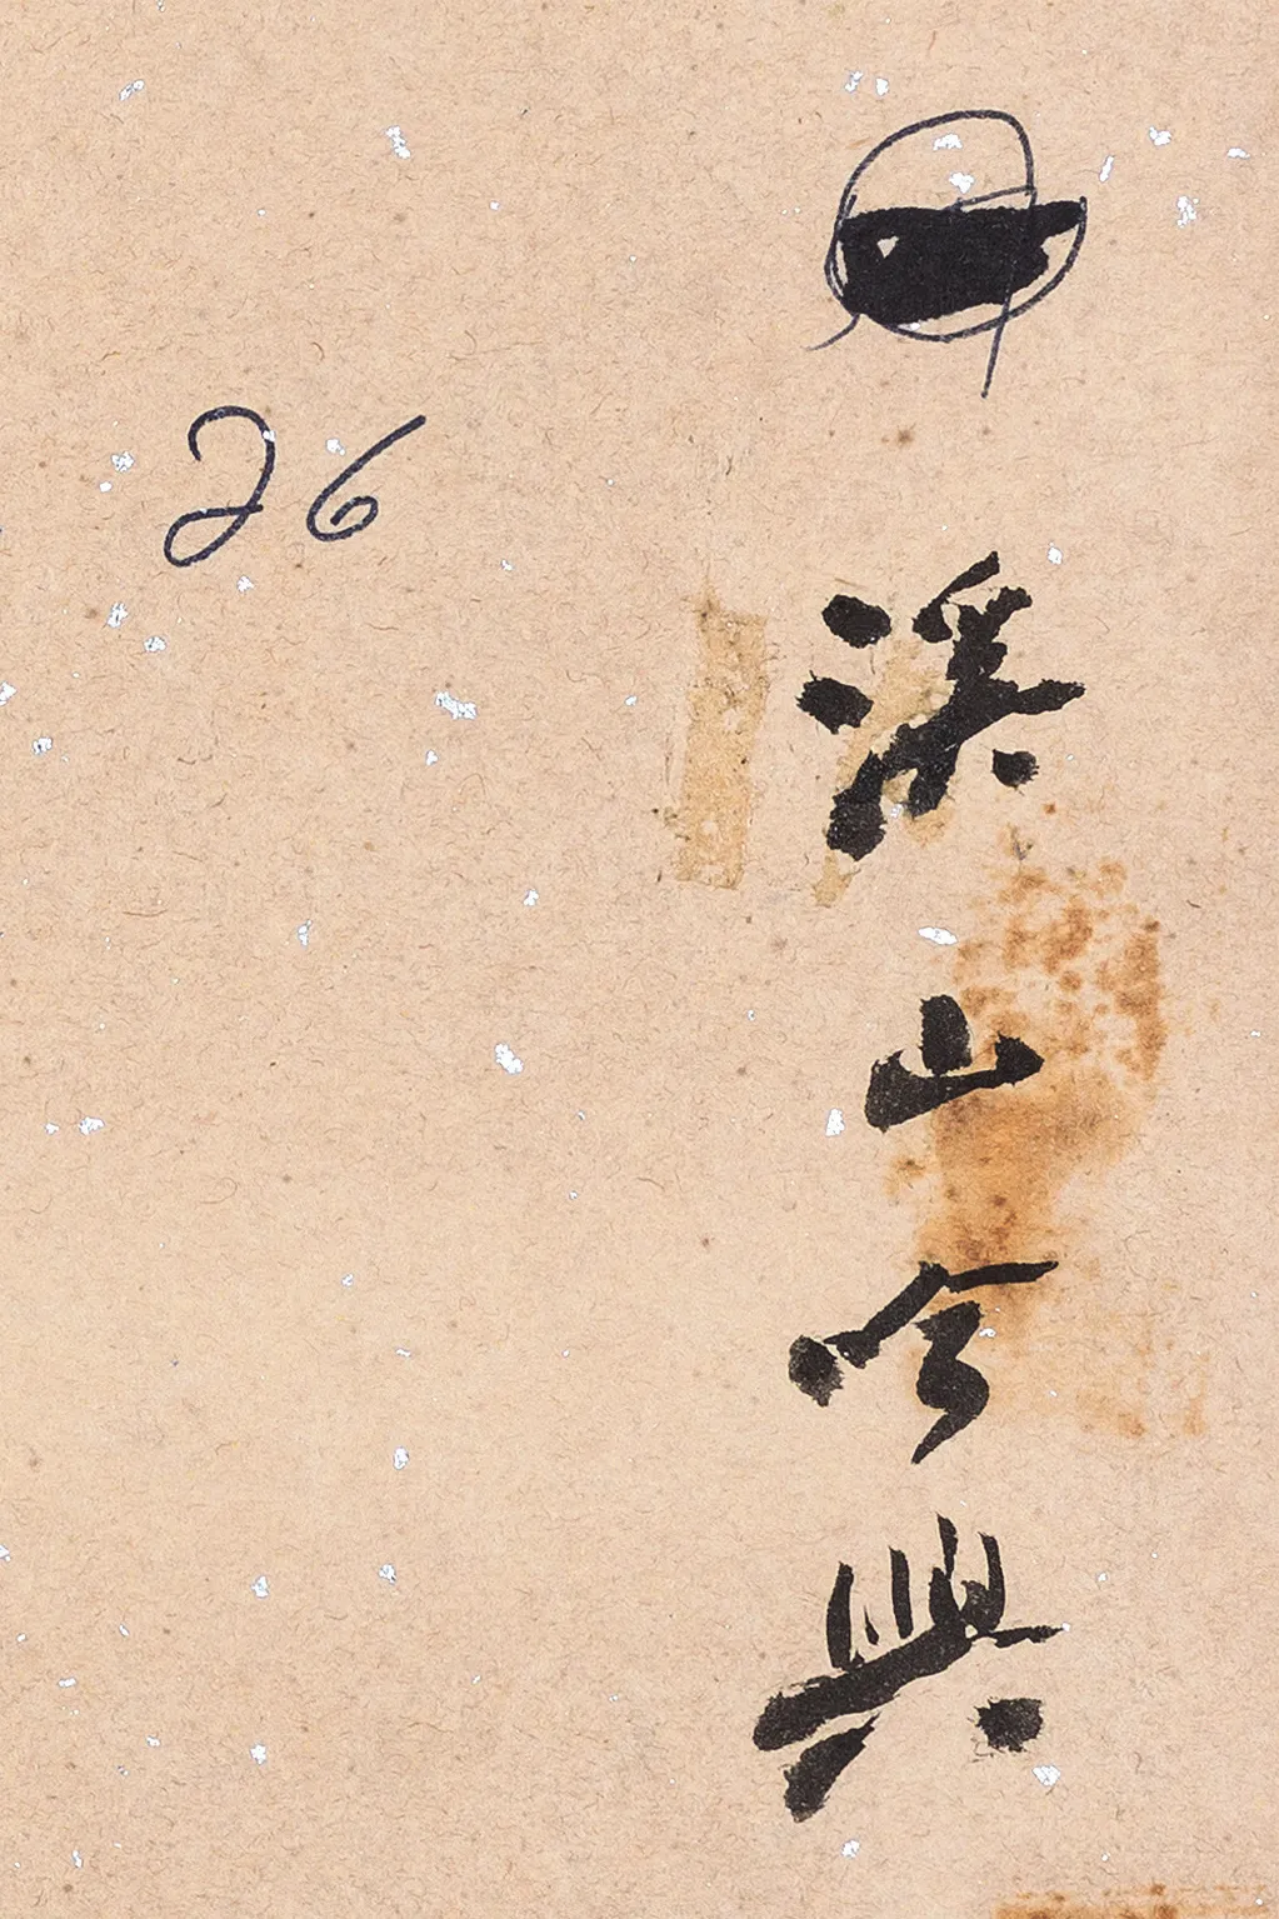 溪山吟興
26